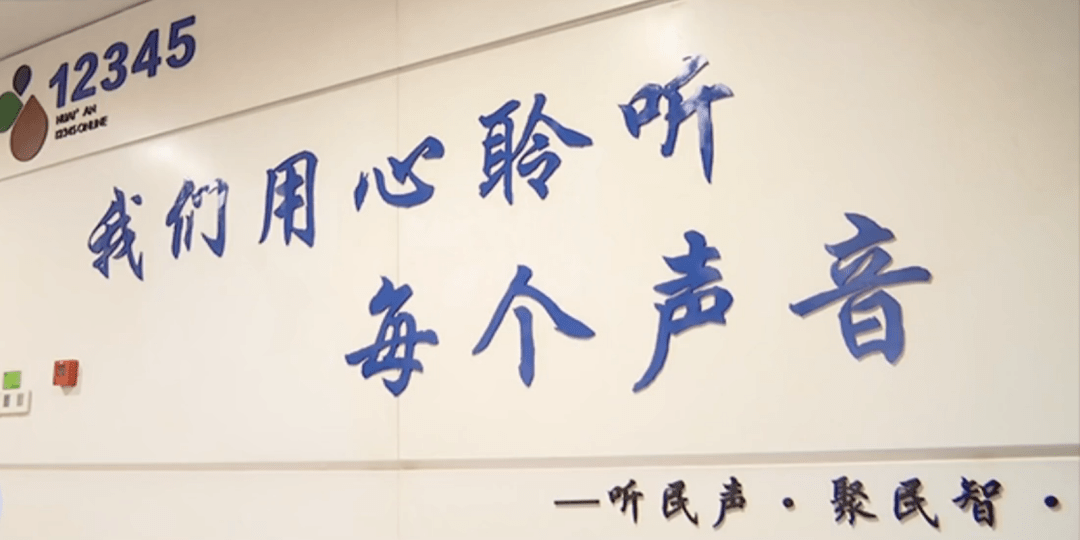 12345
HUAI'AN
12345 ONLINE
我们用心聆听
每个声音
—听民声·聚民智·